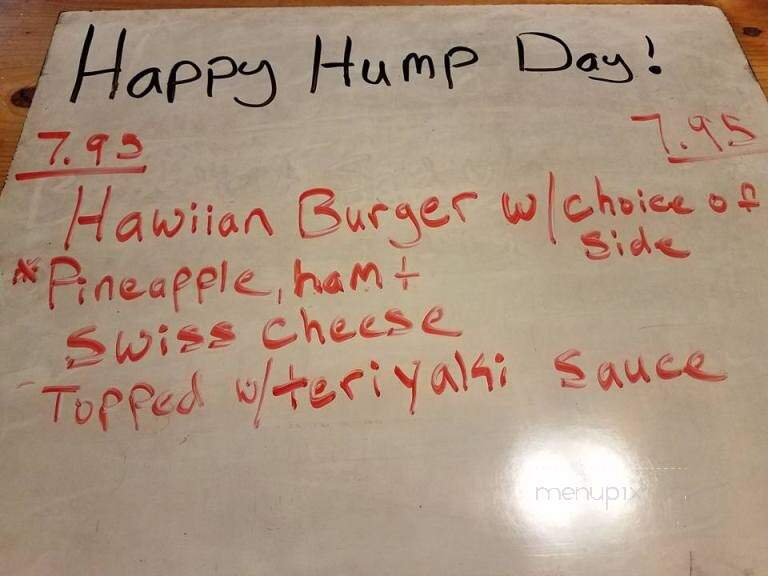 Happy Hump Day!
7.95 7.95
Hawiian Burger w/choice of
side
*Pineapple, ham +
Swiss cheese
-Topped w/teriyaki sauce
menupix